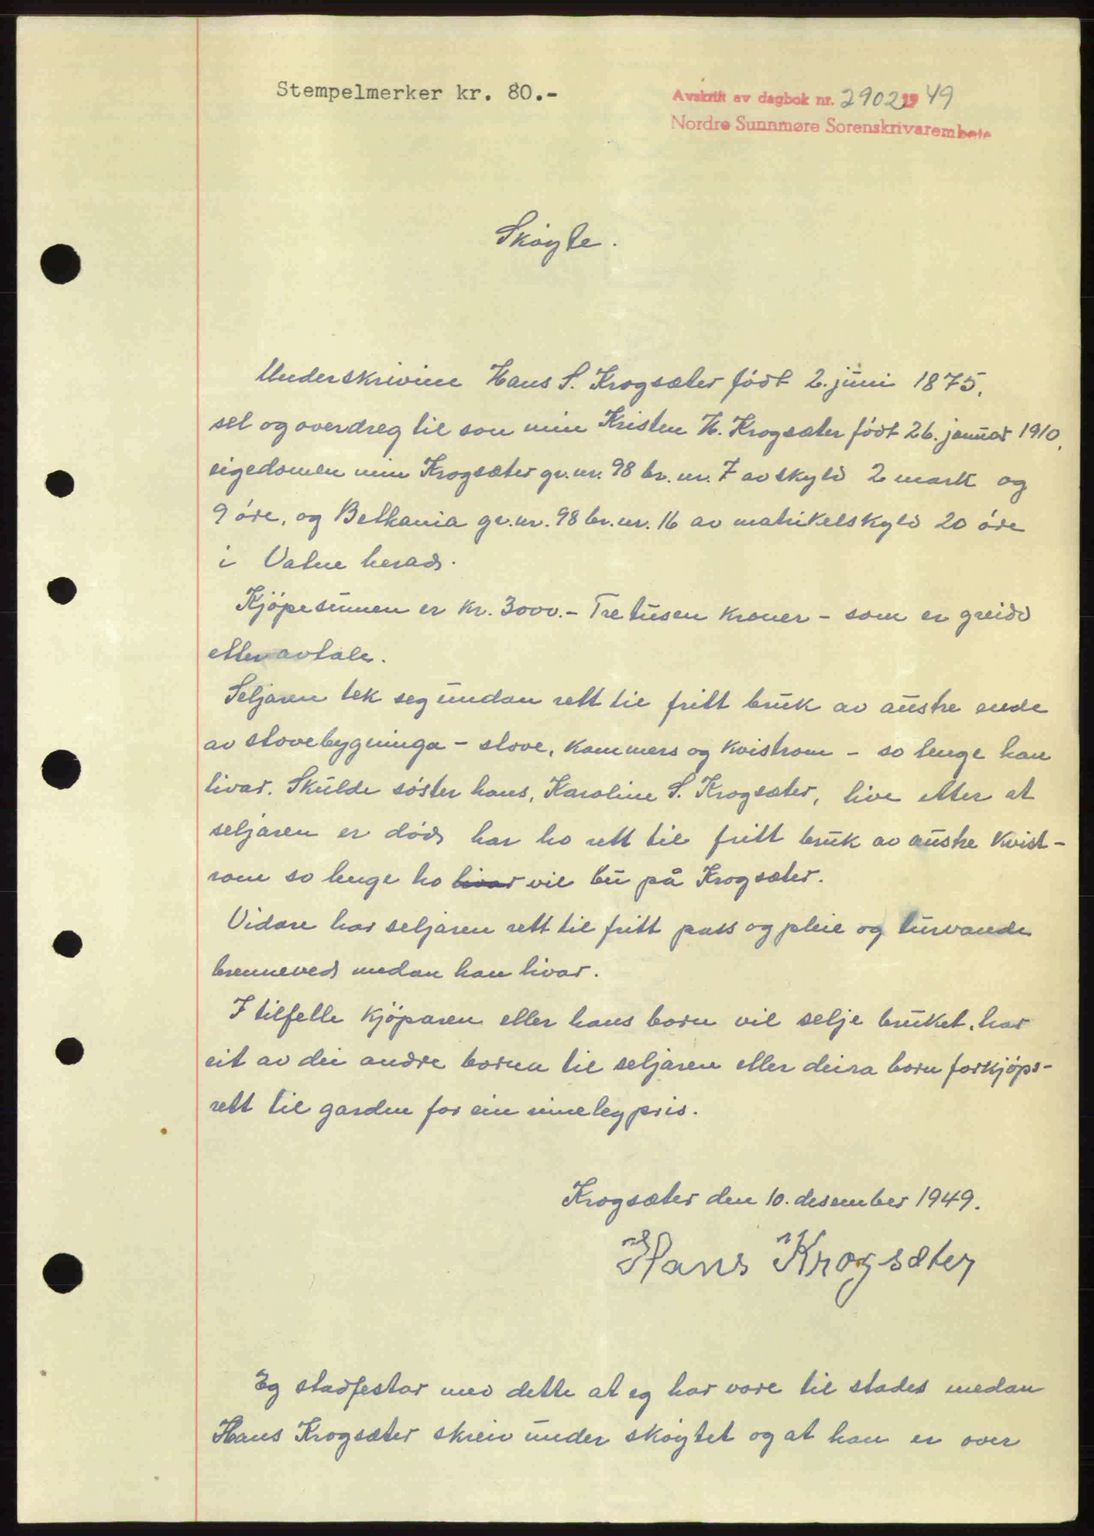 Stempelmerker kr. 80.-
Avskrift av dagbok nr. 2902 19 49
Nordre Sunnmøre Sorenskrivarembete
Skøyte.
Underskrivine Hans S. Krogsæter født 2. juni 1875,
sel og overdreg til son min Kristen H. Krogsæter født 26. januar 1910,
eigedomen min Krogsæter gr.nr. 98 br.nr. 7 av skyld 2 mark og
9 øre, og Bethania gr.nr. 98 br.nr. 16 av matrikelskyld 20 øre
i Vatne herad.
Kjøpesumen er kr. 3000.- Tretusen kroner - som er greidd
etter avtale.
Seljaren tek seg undan rett til fritt bruk av austre ende
av stovebygninga - stove, kammers og kvistrom - so lenge han
livar. Skulde søster hans, Karoline S. Krogsæter, live etter at
seljaren er død, har ho rett til fritt bruk av austre kvist-
rom so lenge ho livar vil bu på Krogsæter.
Vidare har seljaren rett til fritt pass og pleie og turvande
brenneved medan han livar.
I tilfelle kjøparen eller hans born vil selje bruket, har
eit av dei andre borna til seljaren eller deira born forkjøps-
rett til garden for ein rimeleg pris.
Krogsæter den 10. desember 1949.
Hans Krogsæter
Eg stadfestar med dette at eg har vore til stades medan
Hans Krogsæter skreiv under skøytet og at han er over